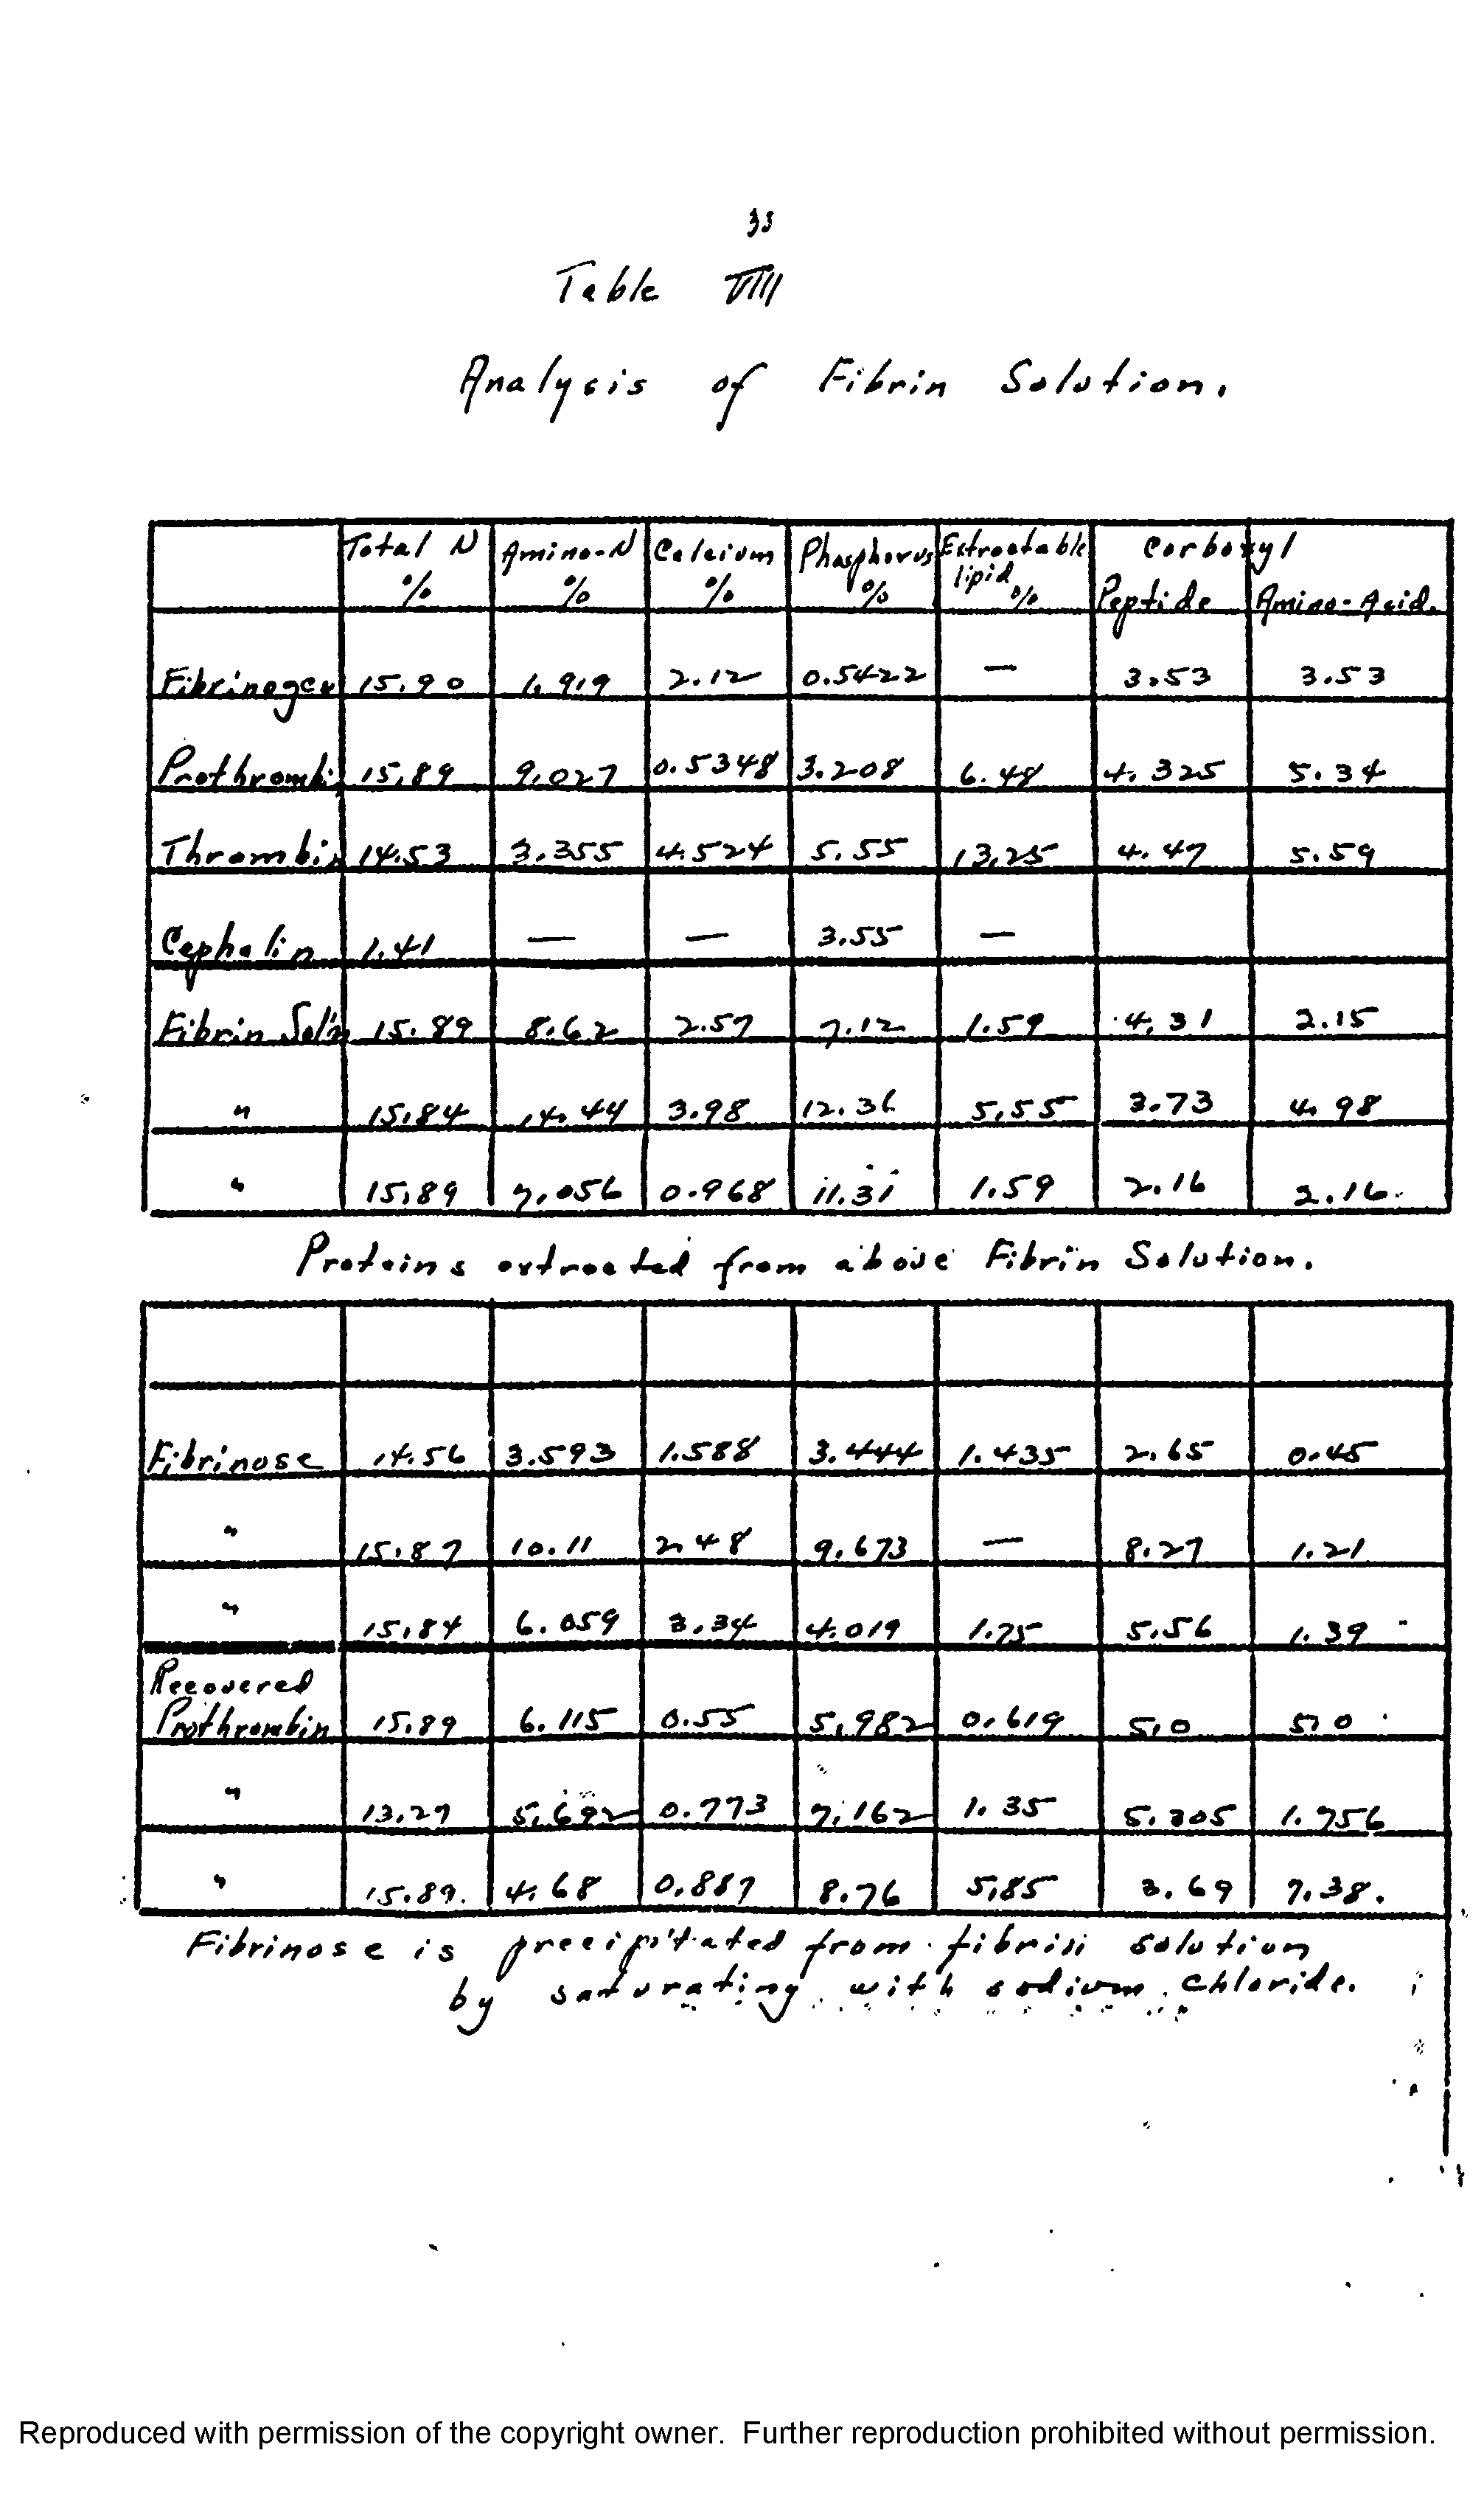 35
Table VIII
Analysis of Fibrin Solution.
Total N % Amino-N % Calcium % Phosphorus % Extractable lipid % Carboxyl
Peptide Amino-Acid.
Fibrinogen 15.90 1.919 2.12 0.5422 — 3.53 3.53
Prothrombi 15.89 9.027 0.5348 3.208 6.48 4.325 5.34
Thrombin 14.53 3.355 4.524 5.55 13.25 4.47 5.59
Cephalin 1.41 — — 3.55 —
Fibrin Sol'n 15.89 8.62 2.57 7.12 1.59 4.31 2.15
" 15.84 14.44 3.98 12.36 5.55 3.73 4.98
" 15.89 7.056 0.968 11.31 1.59 2.16 2.16
Proteins extracted from above Fibrin Solution.
Fibrinose 14.56 3.593 1.588 3.444 1.435 2.65 0.45
" 15.87 10.11 2.48 9.673 — 8.27 1.21
" 15.84 6.059 3.34 4.019 1.75 5.56 1.39
Recovered
Prothrombin 15.89 6.115 0.55 5.982 0.619 5.0 5.0
" 13.27 5.692 0.773 7.162 1.35 5.305 1.756
" 15.89 4.68 0.887 8.76 5.85 3.69 7.38
Fibrinose is precipitated from fibrin solution
by saturating with sodium chloride.
Reproduced with permission of the copyright owner. Further reproduction prohibited without permission.